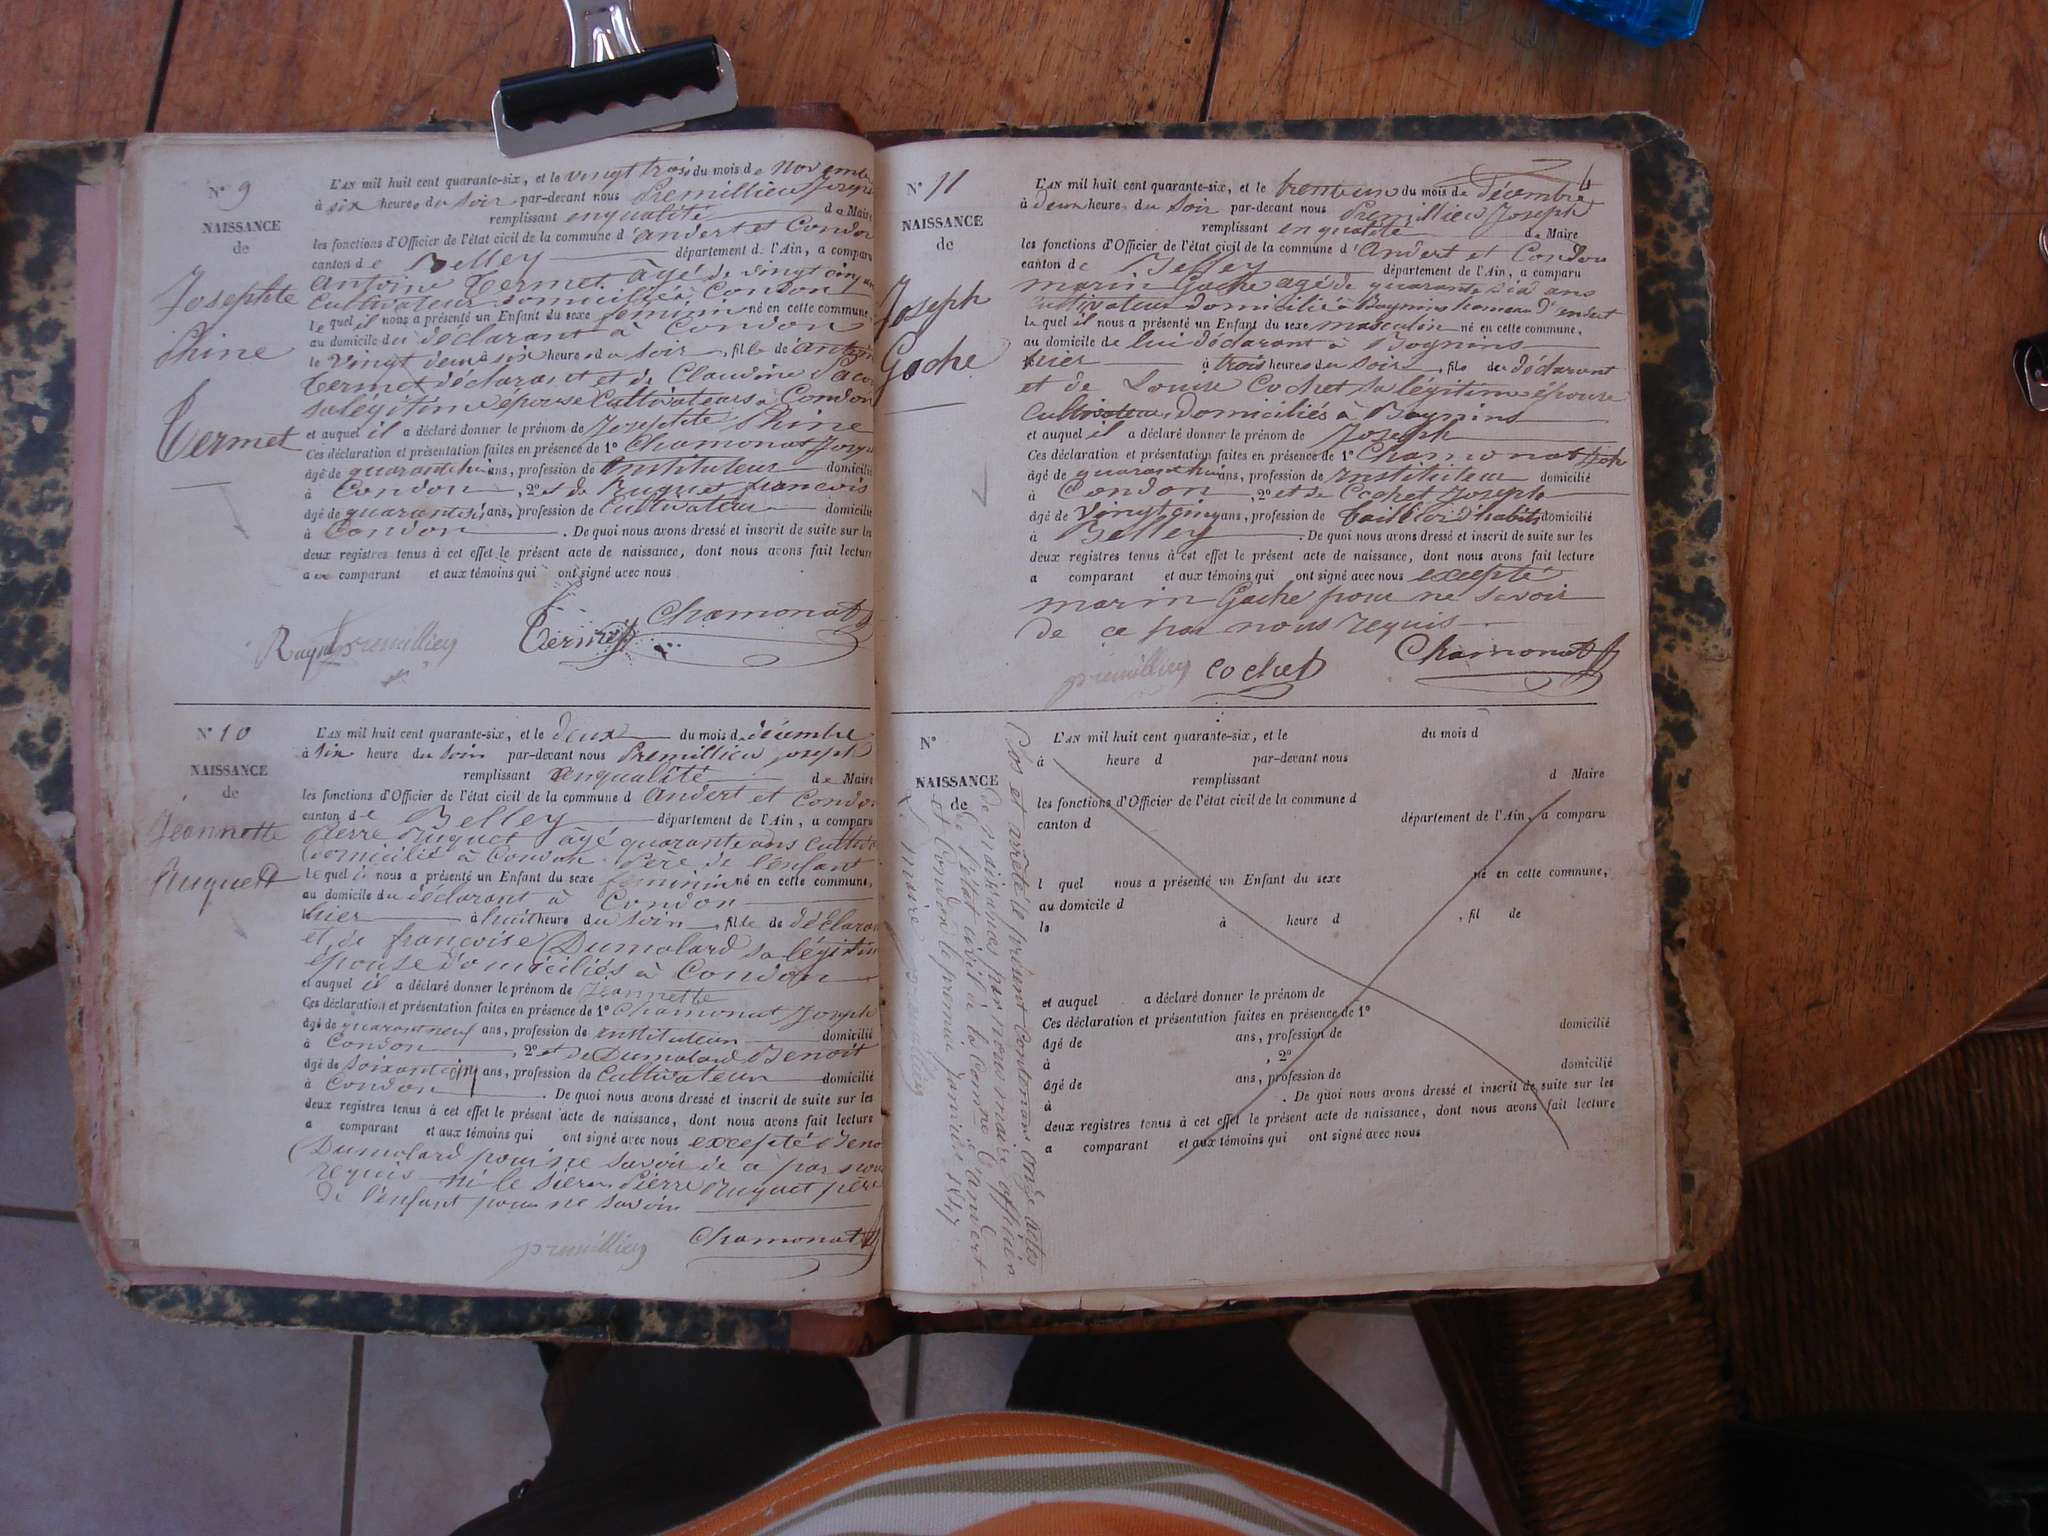 N° 9
NAISSANCE
de
Josephte
Phine
Termet
L'AN mil huit cent quarante-six, et le vingt trois du mois de Novembre
à six heures du soir par-devant nous Premillieu Joseph
remplissant en qualité de Maire
les fonctions d'Officier de l'état civil de la commune d'andert et Condon
canton de Belley département de l'Ain, a comparu
antoine Termet âgé de vingt cinq ans
Cultivateur domicilié à Condon
lequel il nous a présenté un Enfant du sexe feminin né en cette commune,
au domicile du déclarant à Condon
le vingt deux à six heures du soir, fille de antoine
Termet déclarant et de Claudine
sa légitime epouse Cultivateurs à Condon
et auquel il a déclaré donner le prénom de Josephte Phine
Ces déclaration et présentation faites en présence de 1° Chamonat Joseph
âgé de quarante huit ans, profession de Instituteur domicilié
à Condon, 2° et de Ruguet francois
âgé de quarante six ans, profession de Cultivateur domicilié
à Condon. De quoi nous avons dressé et inscrit de suite sur les
deux registres tenus à cet effet le présent acte de naissance, dont nous avons fait lecture
au comparant et aux témoins qui ont signé avec nous
Chamonat
Termet
Ruguet premillieu
N° 10
NAISSANCE
de
Jeannette
Ruguet
L'AN mil huit cent quarante-six, et le deux du mois de décembre
à six heure du soir par-devant nous Premillieu joseph
remplissant en qualité de Maire
les fonctions d'Officier de l'état civil de la commune d andert et Condon
canton de Belley département de l'Ain, a comparu
pierre Ruguet âgé quarante ans cultiv
domicilié à Condon père de l'enfant
lequel il nous a présenté un Enfant du sexe féminin né en cette commune,
au domicile du déclarant à Condon
hier à huit heure du soir, fille de déclarant
et de françoise Dumolard sa légitime
epouse domiciliés à Condon
et auquel il a déclaré donner le prénom de Jeannette
Ces déclaration et présentation faites en présence de 1° Chamonat Joseph
âgé de quarante neuf ans, profession de instituteur domicilié
à Condon, 2° et de Dumolard Benoit
âgé de soixante cinq ans, profession de Cultivateur domicilié
à Condon. De quoi nous avons dressé et inscrit de suite sur les
deux registres tenus à cet effet le présent acte de naissance, dont nous avons fait lecture
a comparant et aux témoins qui ont signé avec nous excepté Benoit
Dumolard pour ne savoir de ce par nous
requis ni le sieur Pierre Ruguet père
de l'enfant pour ne savoir
premillieu Chamonat
N° 11
NAISSANCE
de
Joseph
Goche
L'AN mil huit cent quarante-six, et le trente un du mois de décembre
à deux heures du soir par-devant nous Premillieu Joseph
remplissant en qualité de Maire
les fonctions d'Officier de l'état civil de la commune d'Andert et Condon
canton de Belley département de l'Ain, a comparu
marin Goche agé de quarante six ans
cultivateur domicilié à Bognins hameau d'andert
lequel il nous a présenté un Enfant du sexe masculin né en cette commune,
au domicile de lui déclarant à Bognins
hier à trois heures du soir, fils du déclarant
et de Louise Cochet sa légitime épouse
Cultivateurs domiciliés à Bognins
et auquel il a déclaré donner le prénom de Joseph
Ces déclaration et présentation faites en présence de 1° Chamonat Joseph
âgé de quarante huit ans, profession de instituteur domicilié
à Condon, 2° et de Cochet Joseph
âgé de vingt cinq ans, profession de tailleur d'habits domicilié
à Belley. De quoi nous avons dressé et inscrit de suite sur les
deux registres tenus à cet effet le présent acte de naissance, dont nous avons fait lecture
a comparant et aux témoins qui ont signé avec nous excepté
marin Goche pour ne savoir
de ce par nous requis
premillieu cochet Chamonat
N°
NAISSANCE
de
Clos et arrêté le présent Contenant onze actes
de naissances par nous maire officier
de l'état civil de la Comne d'andert
et Condon le premier janvier 1847
Le maire premillieu
L'AN mil huit cent quarante-six, et le du mois d
à heure d par-devant nous
remplissant d Maire
les fonctions d'Officier de l'état civil de la commune d
canton d département de l'Ain, a comparu
l quel nous a présenté un Enfant du sexe né en cette commune,
au domicile d
le à heure d , fil de
et auquel a déclaré donner le prénom de
Ces déclaration et présentation faites en présence de 1°
âgé de ans, profession de domicilié
à , 2°
âgé de ans, profession de domicilié
à . De quoi nous avons dressé et inscrit de suite sur les
deux registres tenus à cet effet le présent acte de naissance, dont nous avons fait lecture
a comparant et aux témoins qui ont signé avec nous